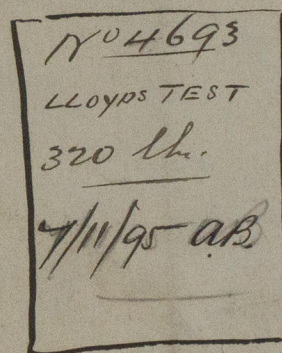 No 4693
LLOYDS TEST
320 lbs.
7/11/95 A.B.